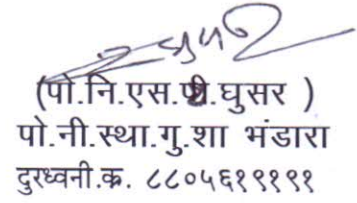 (पो.नि.एस.पी.घुसर )
पो.नी.स्था.गु.शा भंडारा
दुरध्वनी.क्र. ८८०५६१९१९१